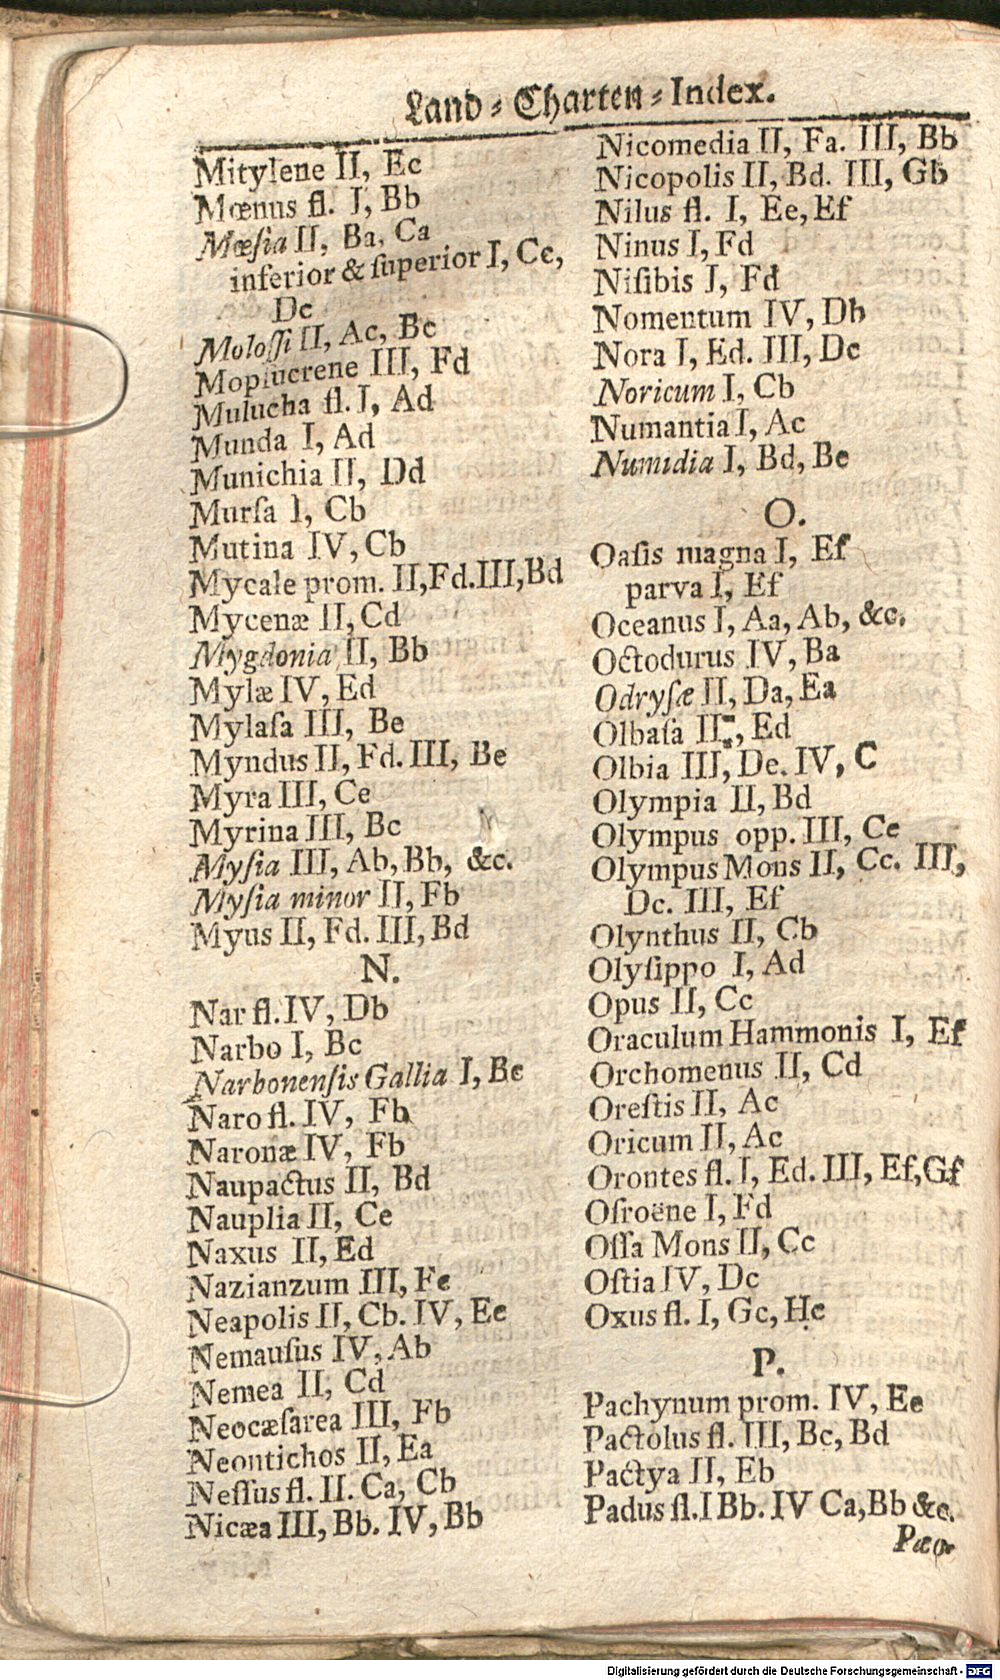 Land-Charten-Index.
Mitylene II, Ec
Mœnus fl. I, Bb
Mœſia II, Ba, Ca
inferior & ſuperior I, Cc,
Dc
Moloſſi II, Ac, Bc
Mopſucrene III, Fd
Mulucha fl. I, Ad
Munda I, Ad
Munichia II, Dd
Murſa I, Cb
Mutina IV, Cb
Mycale prom. II, Fd. III, Bd
Mycenæ II, Cd
Mygdonia II, Bb
Mylæ IV, Ed
Mylaſa III, Be
Myndus II, Fd. III, Be
Myra III, Ce
Myrina III, Bc
Myſia III, Ab, Bb, &c.
Myſia minor II, Fb
Myus II, Fd. III, Bd
N.
Nar fl. IV, Db
Narbo I, Bc
Narbonenſis Gallia I, Bc
Naro fl. IV, Fb
Naronæ IV, Fb
Naupactus II, Bd
Nauplia II, Ce
Naxus II, Ed
Nazianzum III, Fe
Neapolis II, Cb. IV, Ee
Nemauſus IV, Ab
Nemea II, Cd
Neocæſarea III, Fb
Neontichos II, Ea
Neſſus fl. II. Ca, Cb
Nicæa III, Bb. IV, Bb
Nicomedia II, Fa. III, Bb
Nicopolis II, Bd. III, Gb
Nilus fl. I, Ee, Ef
Ninus I, Fd
Niſibis I, Fd
Nomentum IV, Db
Nora I, Ed. III, Dc
Noricum I, Cb
Numantia I, Ac
Numidia I, Bd, Be
O.
Oaſis magna I, Ef
parva I, Ef
Oceanus I, Aa, Ab, &c.
Octodurus IV, Ba
Odryſæ II, Da, Ea
Olbaſa II, Ed
Olbia III, De. IV, C
Olympia II, Bd
Olympus opp. III, Ce
Olympus Mons II, Cc. III,
Dc. III, Ef
Olynthus II, Cb
Olyſippo I, Ad
Opus II, Cc
Oraculum Hammonis I, Ef
Orchomenus II, Cd
Oreſtis II, Ac
Oricum II, Ac
Orontes fl. I, Ed. III, Ef, Gf
Oſroëne I, Fd
Oſſa Mons II, Cc
Oſtia IV, Dc
Oxus fl. I, Gc, Hc
P.
Pachynum prom. IV, Ee
Pactolus fl. III, Bc, Bd
Pactya II, Eb
Padus fl. I Bb. IV Ca, Bb &c.
Pæo-
Digitalisierung gefördert durch die Deutsche Forschungsgemeinschaft - DFG